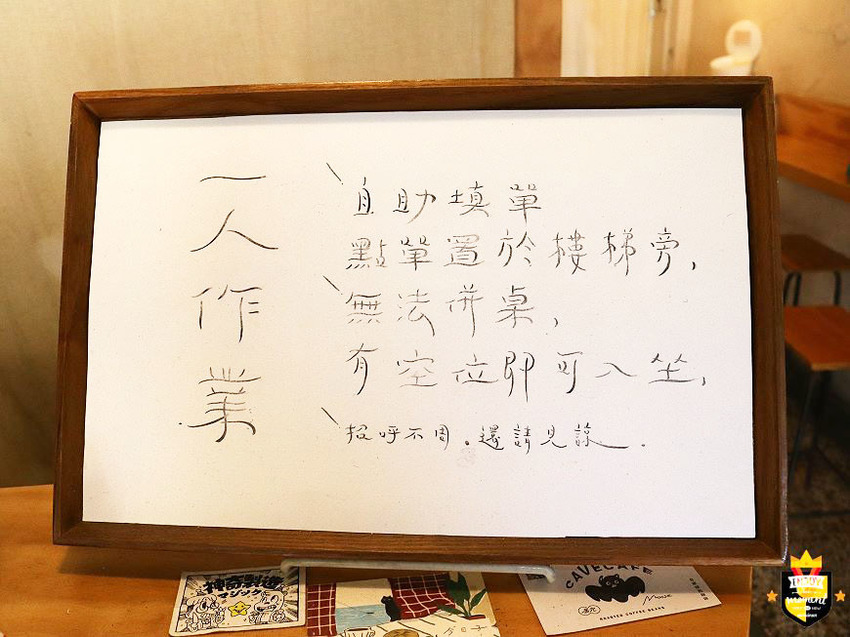 一人作業
自助填單
點單置於樓梯旁,
無法併桌,
有空位即可入坐,
招呼不周。還請見諒.
神奇製造
マジック
CAVECAFE
Mouse
ROASTED COFFEE BEANS
moment